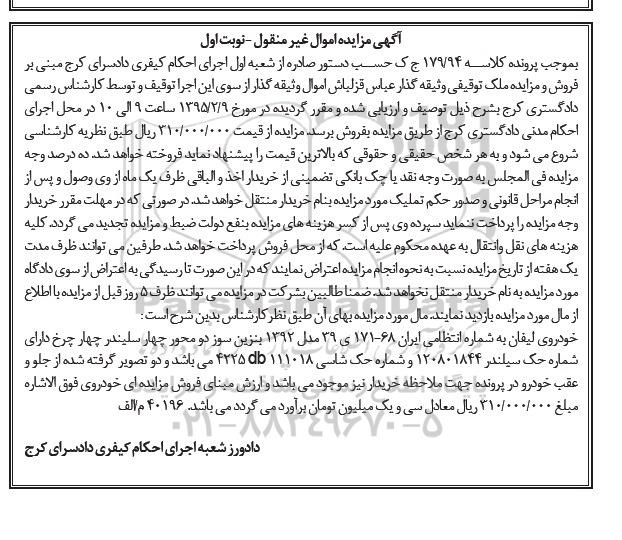 آگهی مزایده اموال غیر منقول -نوبت اول
بموجب پرونده کلاسه ۱۷۹/۹۴ ج ک حسب دستور صادره از شعبه اول اجرای احکام کیفری دادسرای کرج مبنی بر
فروش و مزایده ملک توقیفی وثیقه گذار عباس قزلباش اموال وثیقه گذار از سوی این اجرا توقیف و توسط کارشناس رسمی
دادگستری کرج بشرح ذیل توصیف و ارزیابی شده و مقرر گردیده در مورخ ۱۳۹۵/۲/۹ ساعت ۹ الی ۱۰ در محل اجرای
احکام مدنی دادگستری کرج از طریق مزایده بفروش برسد. مزایده از قیمت ۳۱۰/۰۰۰/۰۰۰ ریال طبق نظریه کارشناسی
شروع می شود و به هر شخص حقیقی و حقوقی که بالاترین قیمت را پیشنهاد نماید فروخته خواهد شد. ده درصد وجه
مزایده فی المجلس به صورت وجه نقد یا چک بانکی تضمینی از خریدار اخذ و الباقی ظرف یک ماه از وی وصول و پس از
انجام مراحل قانونی و صدور حکم تملیک مورد مزایده بنام خریدار منتقل خواهد شد. در صورتی که در مهلت مقرر خریدار
وجه مزایده را پرداخت ننماید سپرده وی پس از کسر هزینه های مزایده بنفع دولت ضبط و مزایده تجدید می گردد. کلیه
هزینه های نقل وانتقال به عهده محکوم علیه است. که از محل فروش پرداخت خواهد شد. طرفین می توانند ظرف مدت
یک هفته از تاریخ مزایده نسبت به نحوه انجام مزایده اعتراض نمایند که در این صورت تا رسیدگی به اعتراض از سوی دادگاه
مورد مزایده به نام خریدار منتقل نخواهد شد. ضمنا طالبین بشرکت در مزایده می توانند ظرف ۵ روز قبل از مزایده با اطلاع
از مال مورد مزایده بازدید نمایند. مال مورد مزایده بهای آن طبق نظر کارشناس بدین شرح است:
خودروی لیفان به شماره انتظامی ایران ۶۸-۱۷۱ ی ۳۹ مدل ۱۳۹۲ بنزین سوز دو محور چهار سلیندر چهار چرخ دارای
شماره حک سیلندر ۱۲۰۸۰۱۸۴۴ و شماره حک شاسی ۱۱۱۰۱۸ db ۴۲۲۵ می باشد و دو تصویر گرفته شده از جلو و
عقب خودرو در پرونده جهت ملاحظه خریدار نیز موجود می باشد و ارزش مبنای فروش مزایده ای خودروی فوق الاشاره
مبلغ ۳۱۰/۰۰۰/۰۰۰ ریال معادل سی و یک میلیون تومان برآورد می گردد می باشد. ۴۰۱۹۶ م/الف
۰۲۱-۸۸۳۴۹۶۷۰-۵
دادورز شعبه اجرای احکام کیفری دادسرای کرج